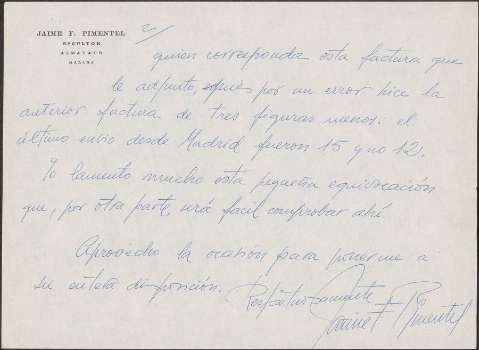 JAIME F. PIMENTEL
ESCULTOR
ALMAYATE
MALAGA
2/
quien corresponda esta factura que
le adjunto, pues por un error hice la
anterior factura de tres figuras menos: el
último envio desde Madrid fueron 15 y no 12.
Yo lamento mucho esta pequeña equivocación
que, por otra parte, será facil comprobar ahí.
Aprovecho la ocasión para ponerme a
su entera disposición.
Jaime F. Pimentel